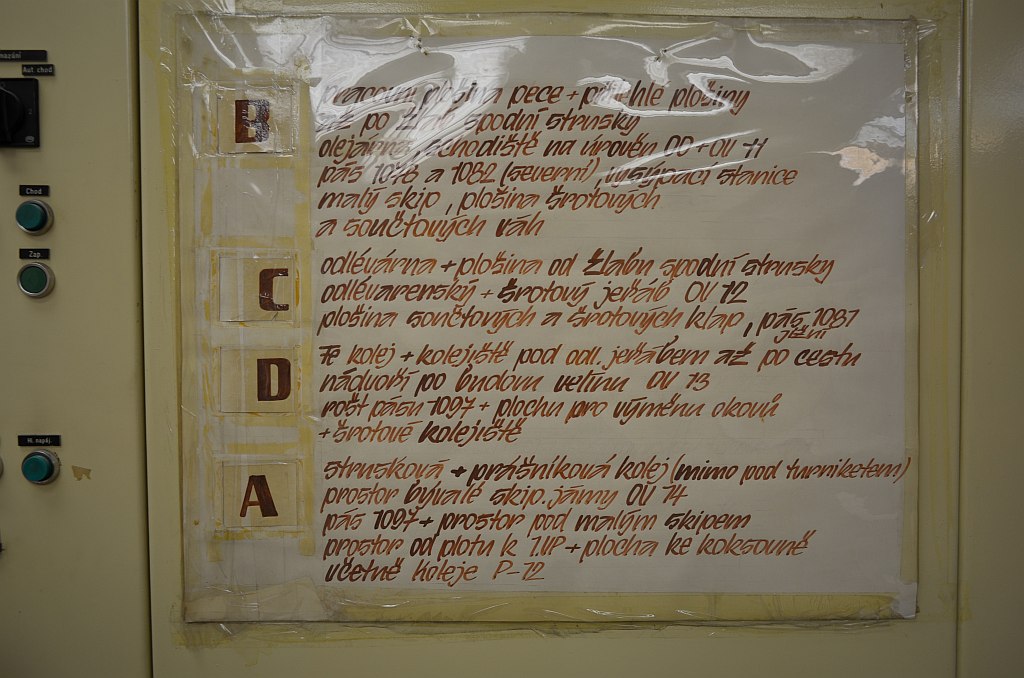 mazání
Aut chod
Chod
Zap.
Hl. napáj.
B
pracovní plošina pece + přilehlé plošiny
až po žlab spodní strusky
olejárna, schodiště na úrověň OO + OV 11
pás 1076 a 1082 (severní), vysýpací stanice
malý skip, plošina šrotových
a součtových váh
C
odlévárna + plošina od žlabu spodní strusky
odlévarenský + šrotový jeřáb OV 12
plošina součtových a šrotových klap, pás 1087
jižní
D
Fe kolej + kolejiště pod odl. jeřábem až po cestu
nádvoří po budovu velínu OV 13
rošt pásu 1097 + plochu pro výměnu okovů
+ šrotové kolejiště
A
strusková + prášníková kolej (mimo pod turniketem)
prostor bývalé skip. jámy OV 14
pás 1097 + prostor pod malým skipem
prostor od plotu k 1.VP + plocha ke koksovně
včetně koleje P-12